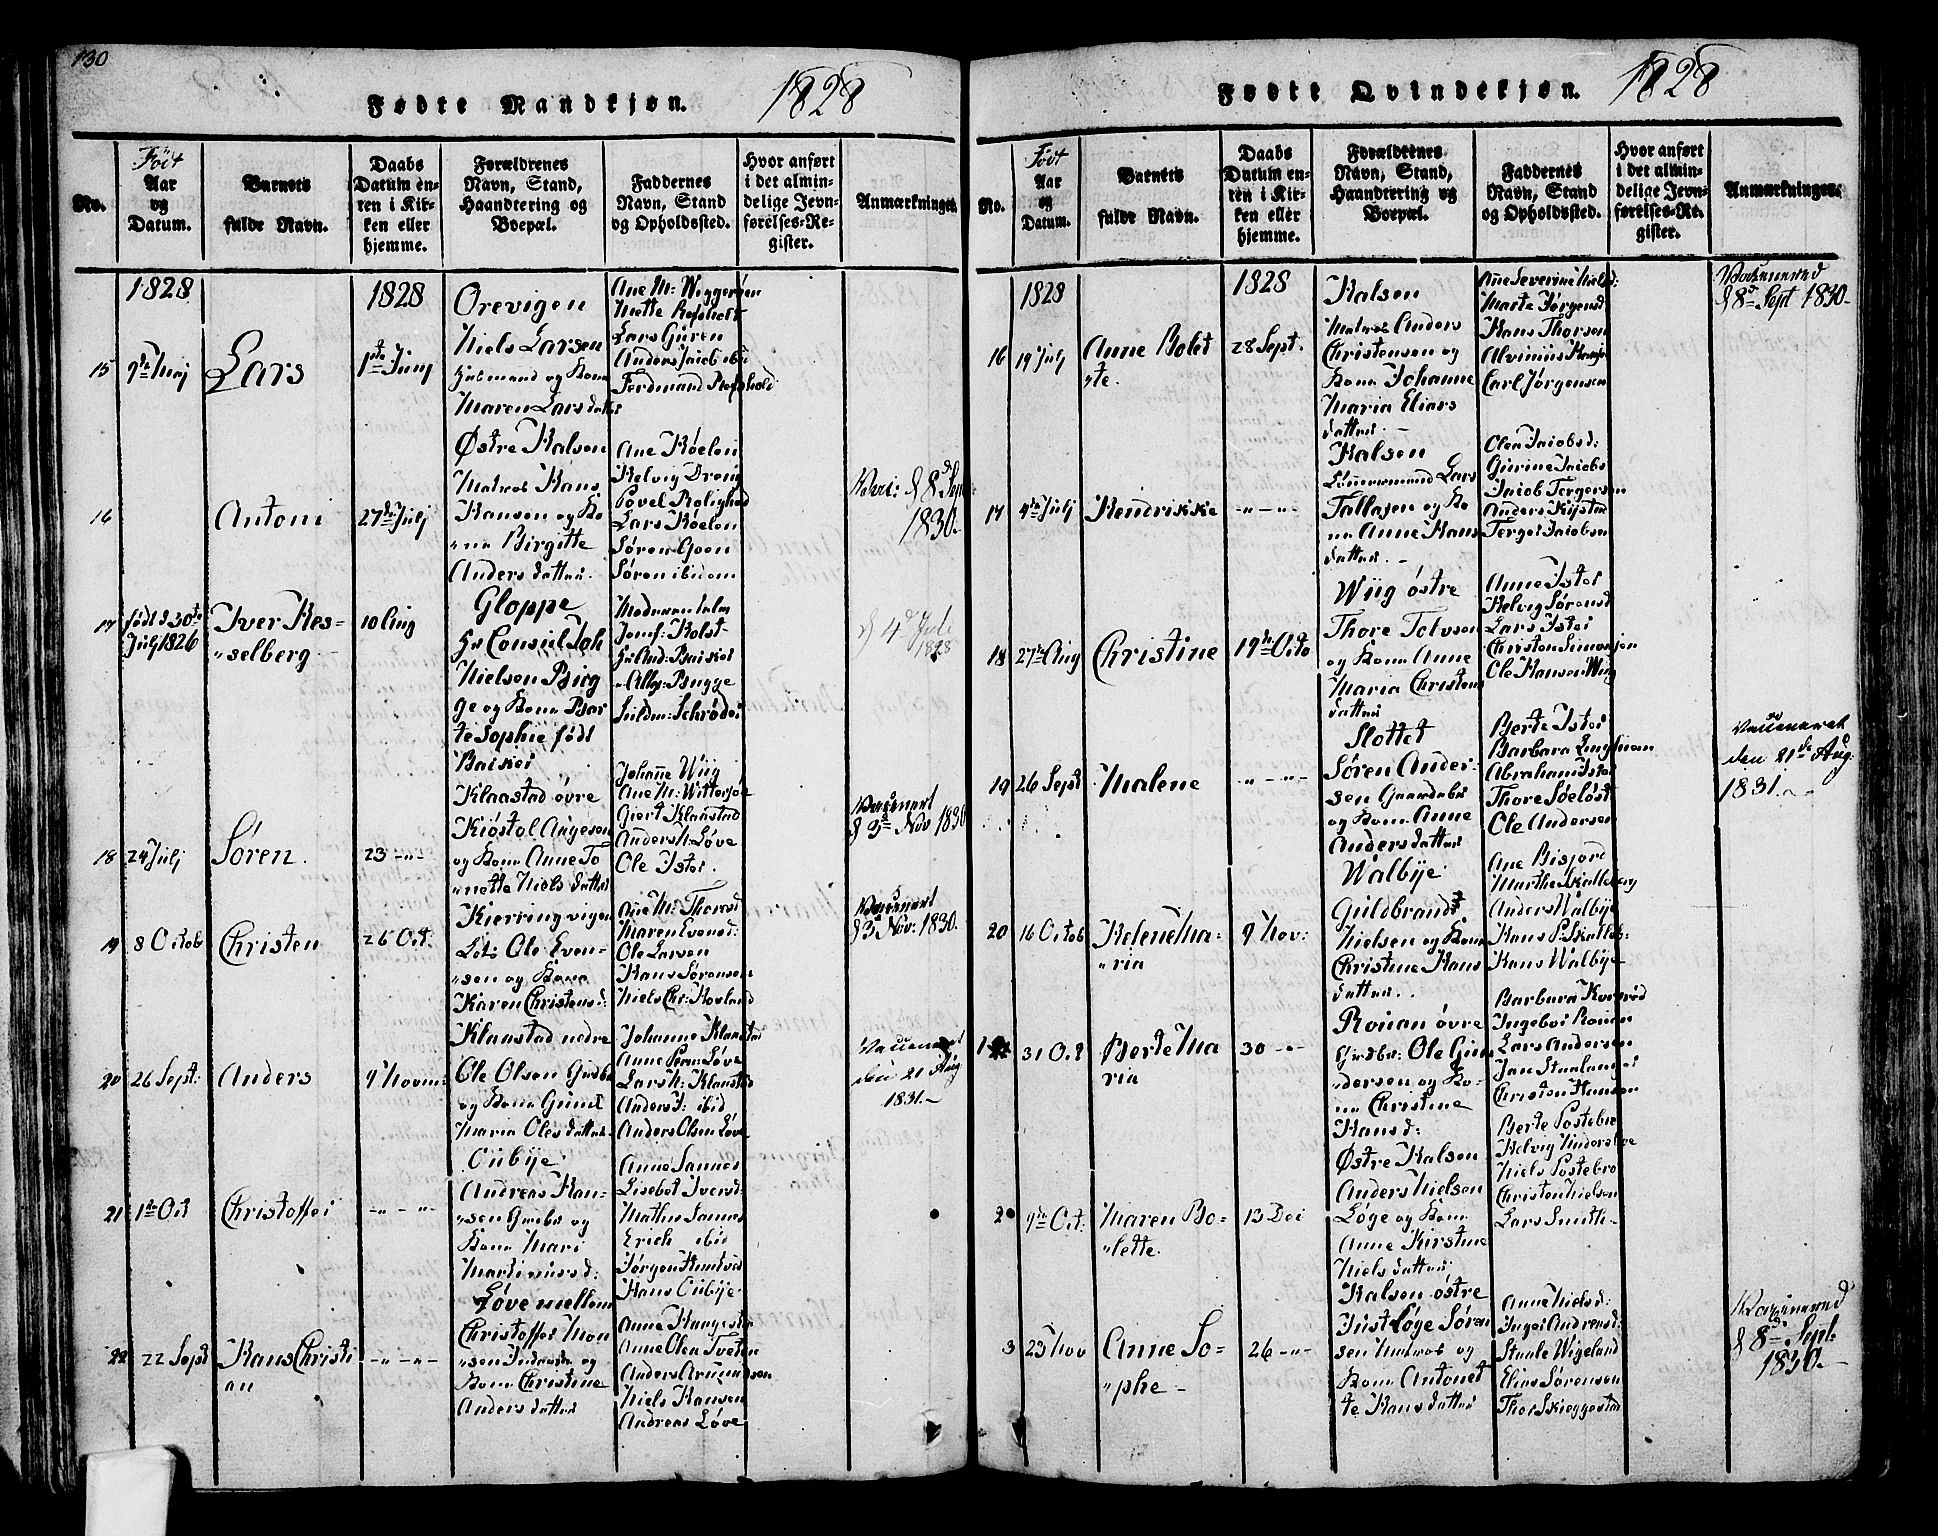 130
Fødte Mandkjøn. 1828
No.
Født
Aar
og
Datum.
Barnets
fulde Navn.
Daabs
Datum en-
ten i Kir-
ken eller
hjemme.
Forældrenes
Navn, Stand,
Haandtering og
Boepæl.
Faddernes
Navn, Stand
og Opholdssted.
Hvor anført
i det almin-
delige Jevn-
førelses-Re-
gister.
Anmærkninger.
1828
1828
15
9de Maj
Lars
1ste Junj
Orevigen
Niels Larsen
Huusmand og Kone
Maren Larsdatter
Ane M: Wiggersøn
Mette Røshholt
Lars Guren
Anders Jacob ibid
Ferdinand Røshhold
16
Antoni
27de Julj
Østre Halsen
Matros Hans
Hansen og Ko
"ne Birgitte
Andersdatter.
Ane Røelon
Helvig Dreng
Povel Rolighed
Lars Røelon
Søren Goen
Søren ibidem
Vacc: d 8de Sept
1830.
17
født d 30te
Julj 1826
Iver Hes-
"selberg
10 Aug
Gloppe
Hr Consul Joh
Nielsen Birg
ge og Kone Bar
te Sophie født
Baiker
Jomf: Holst
Hr And: Baiker
- Alby: Bugge
Guldm: Schrøder
d 4de Juli
1828
18
24 Julj
Søren.
23 -"-
Klaastad øvre
Kiøstol Aagesen
og Kone Anne To
"nette Nielsdatter
Johanne Wiig
Ane M: Wittersøe
Giert Klaastad
Anders N: Løve
Ole Ister.
Vaccineret
d 3de Nov 1830
19
8 Octob
Christen
26 Oct.
Kierringvigen
Lots Ole Even-
"sen og Kone
Karen Christensd:
Ane M: Thoresd
Maren Evensd:
Ole Larsen
Hans Sørensen
Niels Chr: Hovland
Vaccineret
d 3 Nov: 1830.
20
26 Sept:
Anders
9 Novm:
Klaastad nedre
Ole Olsen Gudbr
og Kone Gund
Maria Olesdatter
Johanne Klaastad
Anne Pern: Løve
Lars N: Klaastad
Anders J: ibid
Anders Olsen Løve
Vaccineret
den 21 Aug
1831.-
21
1ste Oct
Christoffer
-"- -"-
Oubÿe.
Andreas Han-
"sen Gudbr og
Kone Mari
Martinusd:
Anne Sannes
Lisebet Iversd:
Mathis Sannes
Erich ibid
Jørgen Huntvedt
Hans Oubÿe.
22
22 Sept
Hans Christi
an
-"-"-
Løve mellem
Christoffer Mon
"sen Inderste og
Kone Christine
Andersdatter
Anne Haugestad
Anne Olea Tveten
Anders Asmundsen
Niels Hansen
Andreas Løve
Fødte Qvindekjøn. 1828
No.
Født
Aar
og
Datum.
Barnets
fulde Navn.
Daabs
Datum en-
ten i Kir-
ken eller
hjemme.
Forældrenes
Navn, Stand,
Haandtering og
Boepæl.
Faddernes
Navn, Stand
og Opholdssted.
Hvor anført
i det almin-
delige Jevn-
førelses-Re-
gister.
Anmærkninger.
1828
1828
16
19 Julj
Anne Bolet
"te.
28 Sept.
Halsen
Matros Anders
Christensen og
Kone Johanne
Maria Elias
datter -
Ane Severine Nielsd:
Marte Jørgensd
Hans Thorsen
Carl Jørgensen
Vaccinered
d 8de Sept 1830-
17
4de Julj
Hendrikke
-"-"-
Halsen
Lars
Tallagen og Ko
ne Anne Hans
datter
Olea Jacobsd:
Gurine Jacobs
Jacob Tergersen
Anders Kijstad
Terger Jacobsen
18
27de Aug
Christine
19de Octo
Wiig østre
Thore Tolvsen
og Kone Anne
Maria Christens
datter
Anne Ister
Helvig Sørensd
Lars Ister
Christen Simonsen
Ole Hansen Wiig
19
26 Sept
Malene
-"-"-
Slottet
Søren Ander-
sen Gaardsbr
og Kone Anne
Andersdatter
Berte Ister
Barbara Lingsman
Abraham Ister
Thore Søeløst
Ole Andersen
Vaccineret
den 21de Aug.
1831.-
20
16 Octob
Helene Ma-
"ria
9 Nov:
Walbÿe
Guldbrand
Nielsen og Kone
Christine Hans
datter.
Ane Bisjord
Marthe Skalleberg
Anders Walbÿe
Hans P. Skalleb-
Hans Walbÿe-
1
31 Oct
Berte Ma
ria
30 -"-
Ronan øvre
Gudbr: Ole Gun
"dersen og Ko-
ne Christine
Hansd:
Barbara Kverød
Ingebor Ronan
Lars Andersen
Jan Staalanger
Christen Hansen
2
9de Oct.
Maren Bo-
"lette.
13 Dec
Østre Halsen
Anders Nielsen
Løge og Kone
Anne Kirstine
Nielsdatter
Berte Postebro
Helvig Understve
Niels Postebro
Christen Nielsen
Lars Smith
3
23 Nov
Anne So-
"phe -
26 -"-
Halsen østre
Just Løge Søren
sen Matros og
Kone Antonet
te Hansdatter
Anne Nielsd:
Inger Andreasd:
Staale Wigeland
Elias Sørensen
Thor Skieggestad
Vaccinered
d 8de Sept.
1830.-